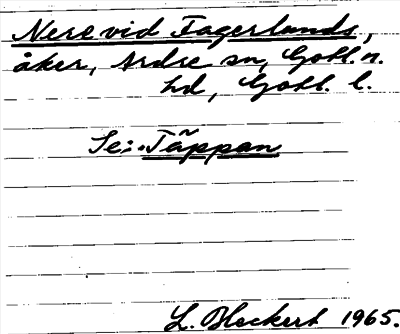 Nere vid Fagerlunds,
åker, Ardre sn, Gotl. n.
hd, Gotl. l.
Se: Täppan
L. Bleckert 1965.